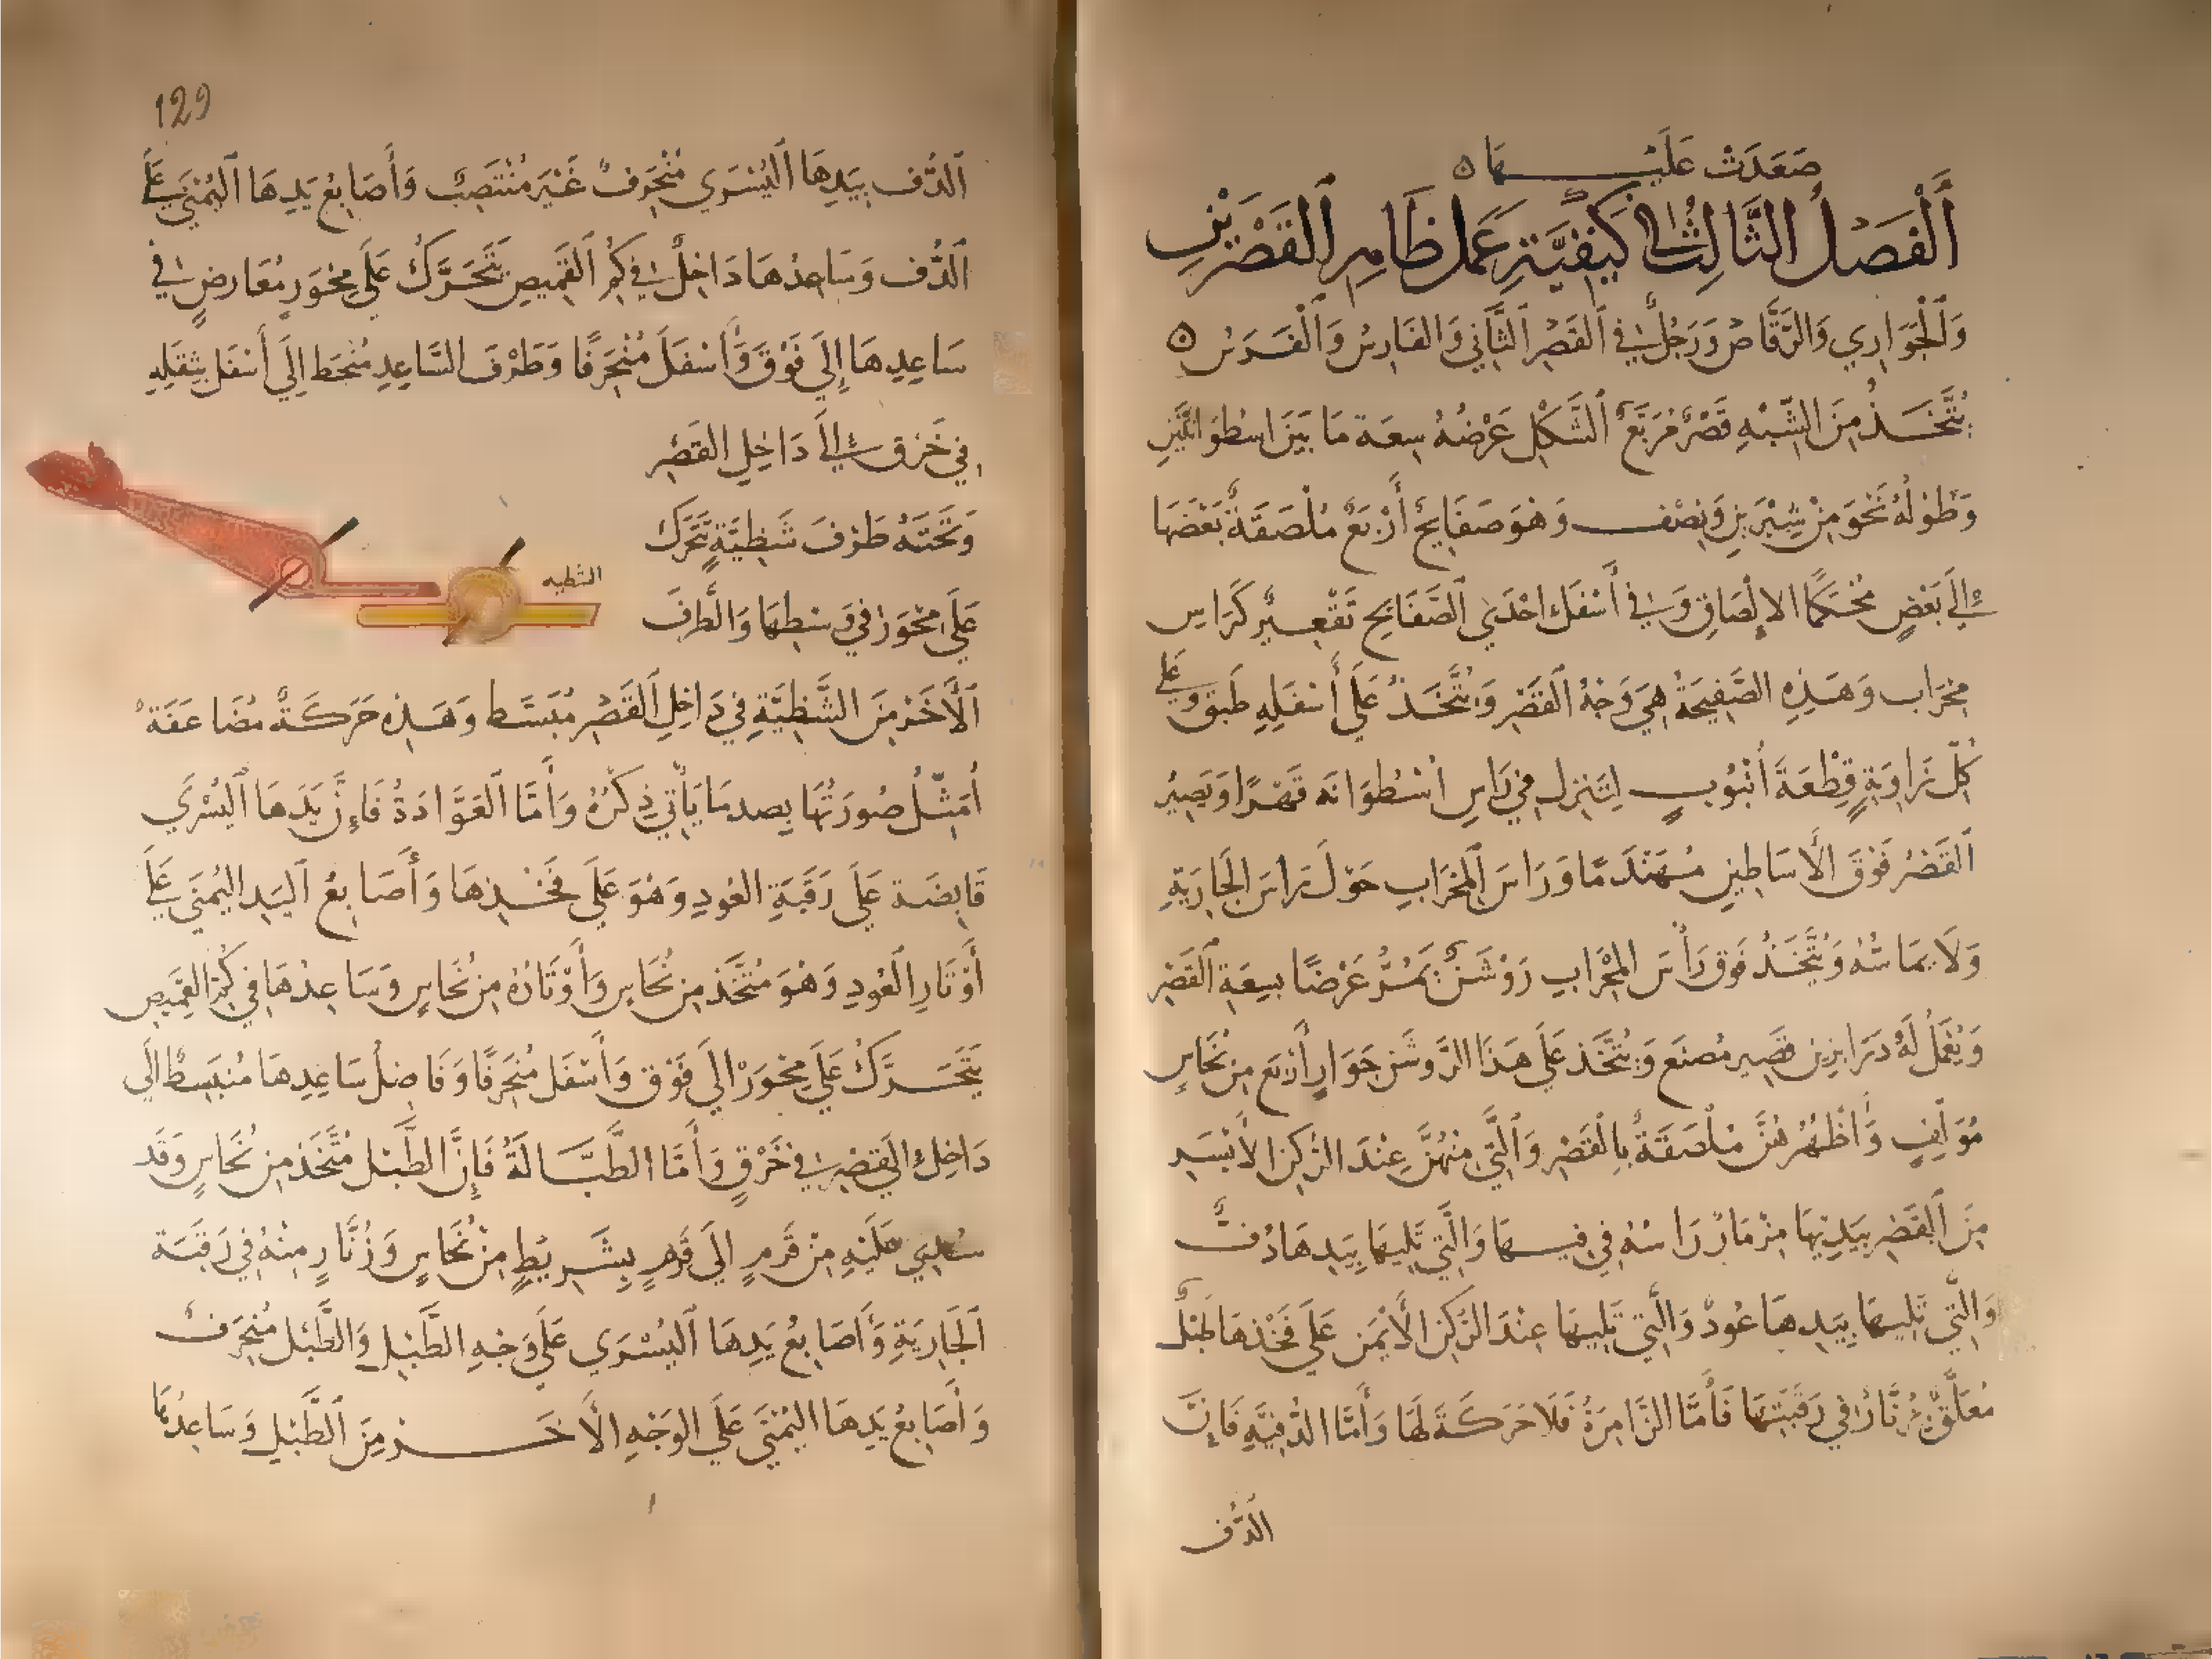 صَعَدَتْ عَلَيْهَا ه
اَلْفَصْلُ الثَّالِثُ فِي كَيْفِيَّةِ عَمَلِ ظَاهِرِ اَلْقَصْرَيْنِ
وَاَلْجَوَارِي وَالرَّقَّاصُ وَرَجُلٌ فِي اَلْقَصْرِ اَلثَّانِي وَالْفَارِسُ وَاَلْفَرَسُ ه
يُتَّخَذُ مِنَ الشَّبَهِ قَصْرٌ مُرَبَّعُ اَلشَّكْلِ عَرْضُهُ سِعَة مَا بَيْنَ اسْطُوَانَتَيْنِ
وَطُولُهُ نَحْوَ مِنْ شِبْرَيْنِ وَنِصْف وَهُوَ صَفَايِحٌ أَرْبَعٌ مُلْصَقَةٌ بَعْضَهَا
إِلَى بَعْضٍ مُحْكَمًا الاِلْصَاقِ وَفِي أَسْفَلِ احْدَى اَلصَّفَايِحِ تَقْعِيرٌ كَرَاسِ
مِحْرَاب وَهَذِهِ الصَّفِيحَةُ هِيَ وَجْهُ اَلْقَصْرِ وَيُتَّخَذُ عَلَى أَسْفَلِهِ طَبَق وَعَلَى
كُلِّ زَاوِيَةٍ قِطْعَةَ أُنْبُوبٍ لِتَنْزِل فِي رَاسِ اُسْطُوَانَه قَهْرًا وَيَصِيُر
اَلْقَصْرُ فَوْقَ الأَسَاطِينِ مُهَنْدَمًا وَرَاسَ اَلْمِحْرَابِ حَوْلَ رَاسَ الْجَارِيَةِ
وَلَا يُمَاسُّهُ وَيُتَّخَذُ فَوْق رَأْسَ المِحْرَابِ رَوْشَنٌ يَمُرُّ عَرْضًا بِسِعَةِ اَلْقَصْرِ
وَيُعْمَلُ لَهُ دَرَابِزِين قَصِير مُصَنَع وَيُتَّخَذ عَلَى هَذَا الرَّوشَن جَوَارٍ أَرْبَع مِنْ نُحَاسٍ
مُوَلَّفٍ وَأَظْهُرُهُنَّ مُلْصَقَةٌ بِالْقَصْرِ وَاَلَّتِي مِنْهُنَّ عِنْدَ الرُّكْنِ الأَيْسَر
مِنَ اَلْقَصْرِ بِيَدَيْهَا مِزْمَارٌ رَاسُهُ فِي فِيهَا وَالَّتِي تَلِيهَا بِيَدِهَا دُفٌّ
وَالَّتِي تَلِيهَا بِيَدِهَا عُودٌ وَالَّتِي تَلِيهَا عِنْدَ الرُّكْنِ الأَيْمَنِ عَلَى فَخْذِهَا طَبْلٌ
مُعَلَّقٌ بِزُنَّارٍ فِي رَقَبَتِهَا فَأَمَّا الزَّامِرَةُ فَلَا حَرَكَةَ لَهَا وَأَمَّا الدُّفِيَّةِ فَإِنَّ
الدُّف
129
اَلدُّف بِيَدِهَا اَلْيُسْرَى مُنْحَرِفٌ غَيْرَ مُنْتَصِبٌ وَأَصَابِعُ يَدِهَا اَلْيُمْنَى عَلَى
اَلدُّف وَسَاعِدُهَا دَاخِلٌ فِي كُمِّ اَلْقَمِيصِ يَتَحَرَّكُ عَلَى مِحْوَرٍ مُعَارِضٍ فِي
سَاعِدِهَا إِلَى فَوْقَ وَأَسْفَلَ مُنْحَرِفًا وَطَرْفَ السَّاعِدِ مُنْحَط إِلَى أَسْفَل بِثِقَلِهِ
فِي خَرْق إِلَى دَاخِلِ القَصْرِ
وَتَحْتَهُ طَرْفَ شَظِيَّةٍ تَتَحَرَّك
عَلَى مِحْوَرٍ فِي وَسْطِهَا وَالطَّرْفَ
الشظيه
اَلآخَرْ مِنَ الشَّظِيَّةِ فِي دَاخِلِ اَلْقَصْرِ مُنْبَسَط وَهَذِهِ حَرَكَةٌ مُضَاعَفَةٌ
أُمَثِّلُ صُورَتُهَا بِصدد مَا يَأْتِي ذِكْرُهُ وَأَمَّا اَلْعَوَّادَةُ فَإِنَّ يَدَهَا اَلْيُسْرَى
قَابِضَة عَلَى رَقَبَةِ العُودِ وَهْوَ عَلَى فَخْذِهَا وَأَصَابِعُ اَلْيَدِ اليُمْنَى عَلَى
أَوْتَارِ الْعُودِ وَهْوَ مُتَّخَذ مِنْ نُحَاسٍ وَأَوْتَارُهُ مِنْ نُحَاسٍ وَسَاعِدُهَا فِي كُمِّ القَمِيصِ
يَتَحَرَّكُ عَلَى مِحْوَرٍ إِلَى فَوْق وَأَسْفَل مُنْحَرِفًا وَفَاضِلُ سَاعِدِهَا مُنْبَسِطٌ إِلَى
دَاخِلِ القَصْرِ فِي خَرْقٍ وَأَمَّا الطَّبَّالَةُ فَإِنَّ الطَّبْل مُتَّخَذ مِنْ نُحَاسٍ وَقَد
عَلَيْهِ مِنْ قَرْمٍ إِلَى قَرْمٍ بِشَرِيطٍ مِنْ نُحَاسٍ وَزُنَّارٍ مِنْهُ فِي رَقَبَة
اَلْجَارِيَةِ وَأَصَابِعُ يَدِهَا اَلْيُسْرَى عَلَى وَجْهِ الطَّبْلِ وَالطَّبْل مُنْحَرِفٌ
وَأَصَابِعُ يَدِهَا اليُمْنَى عَلَى الوَجْهِ الآخَرِ مِنَ اَلطَّبْلِ وَسَاعِدُهَا